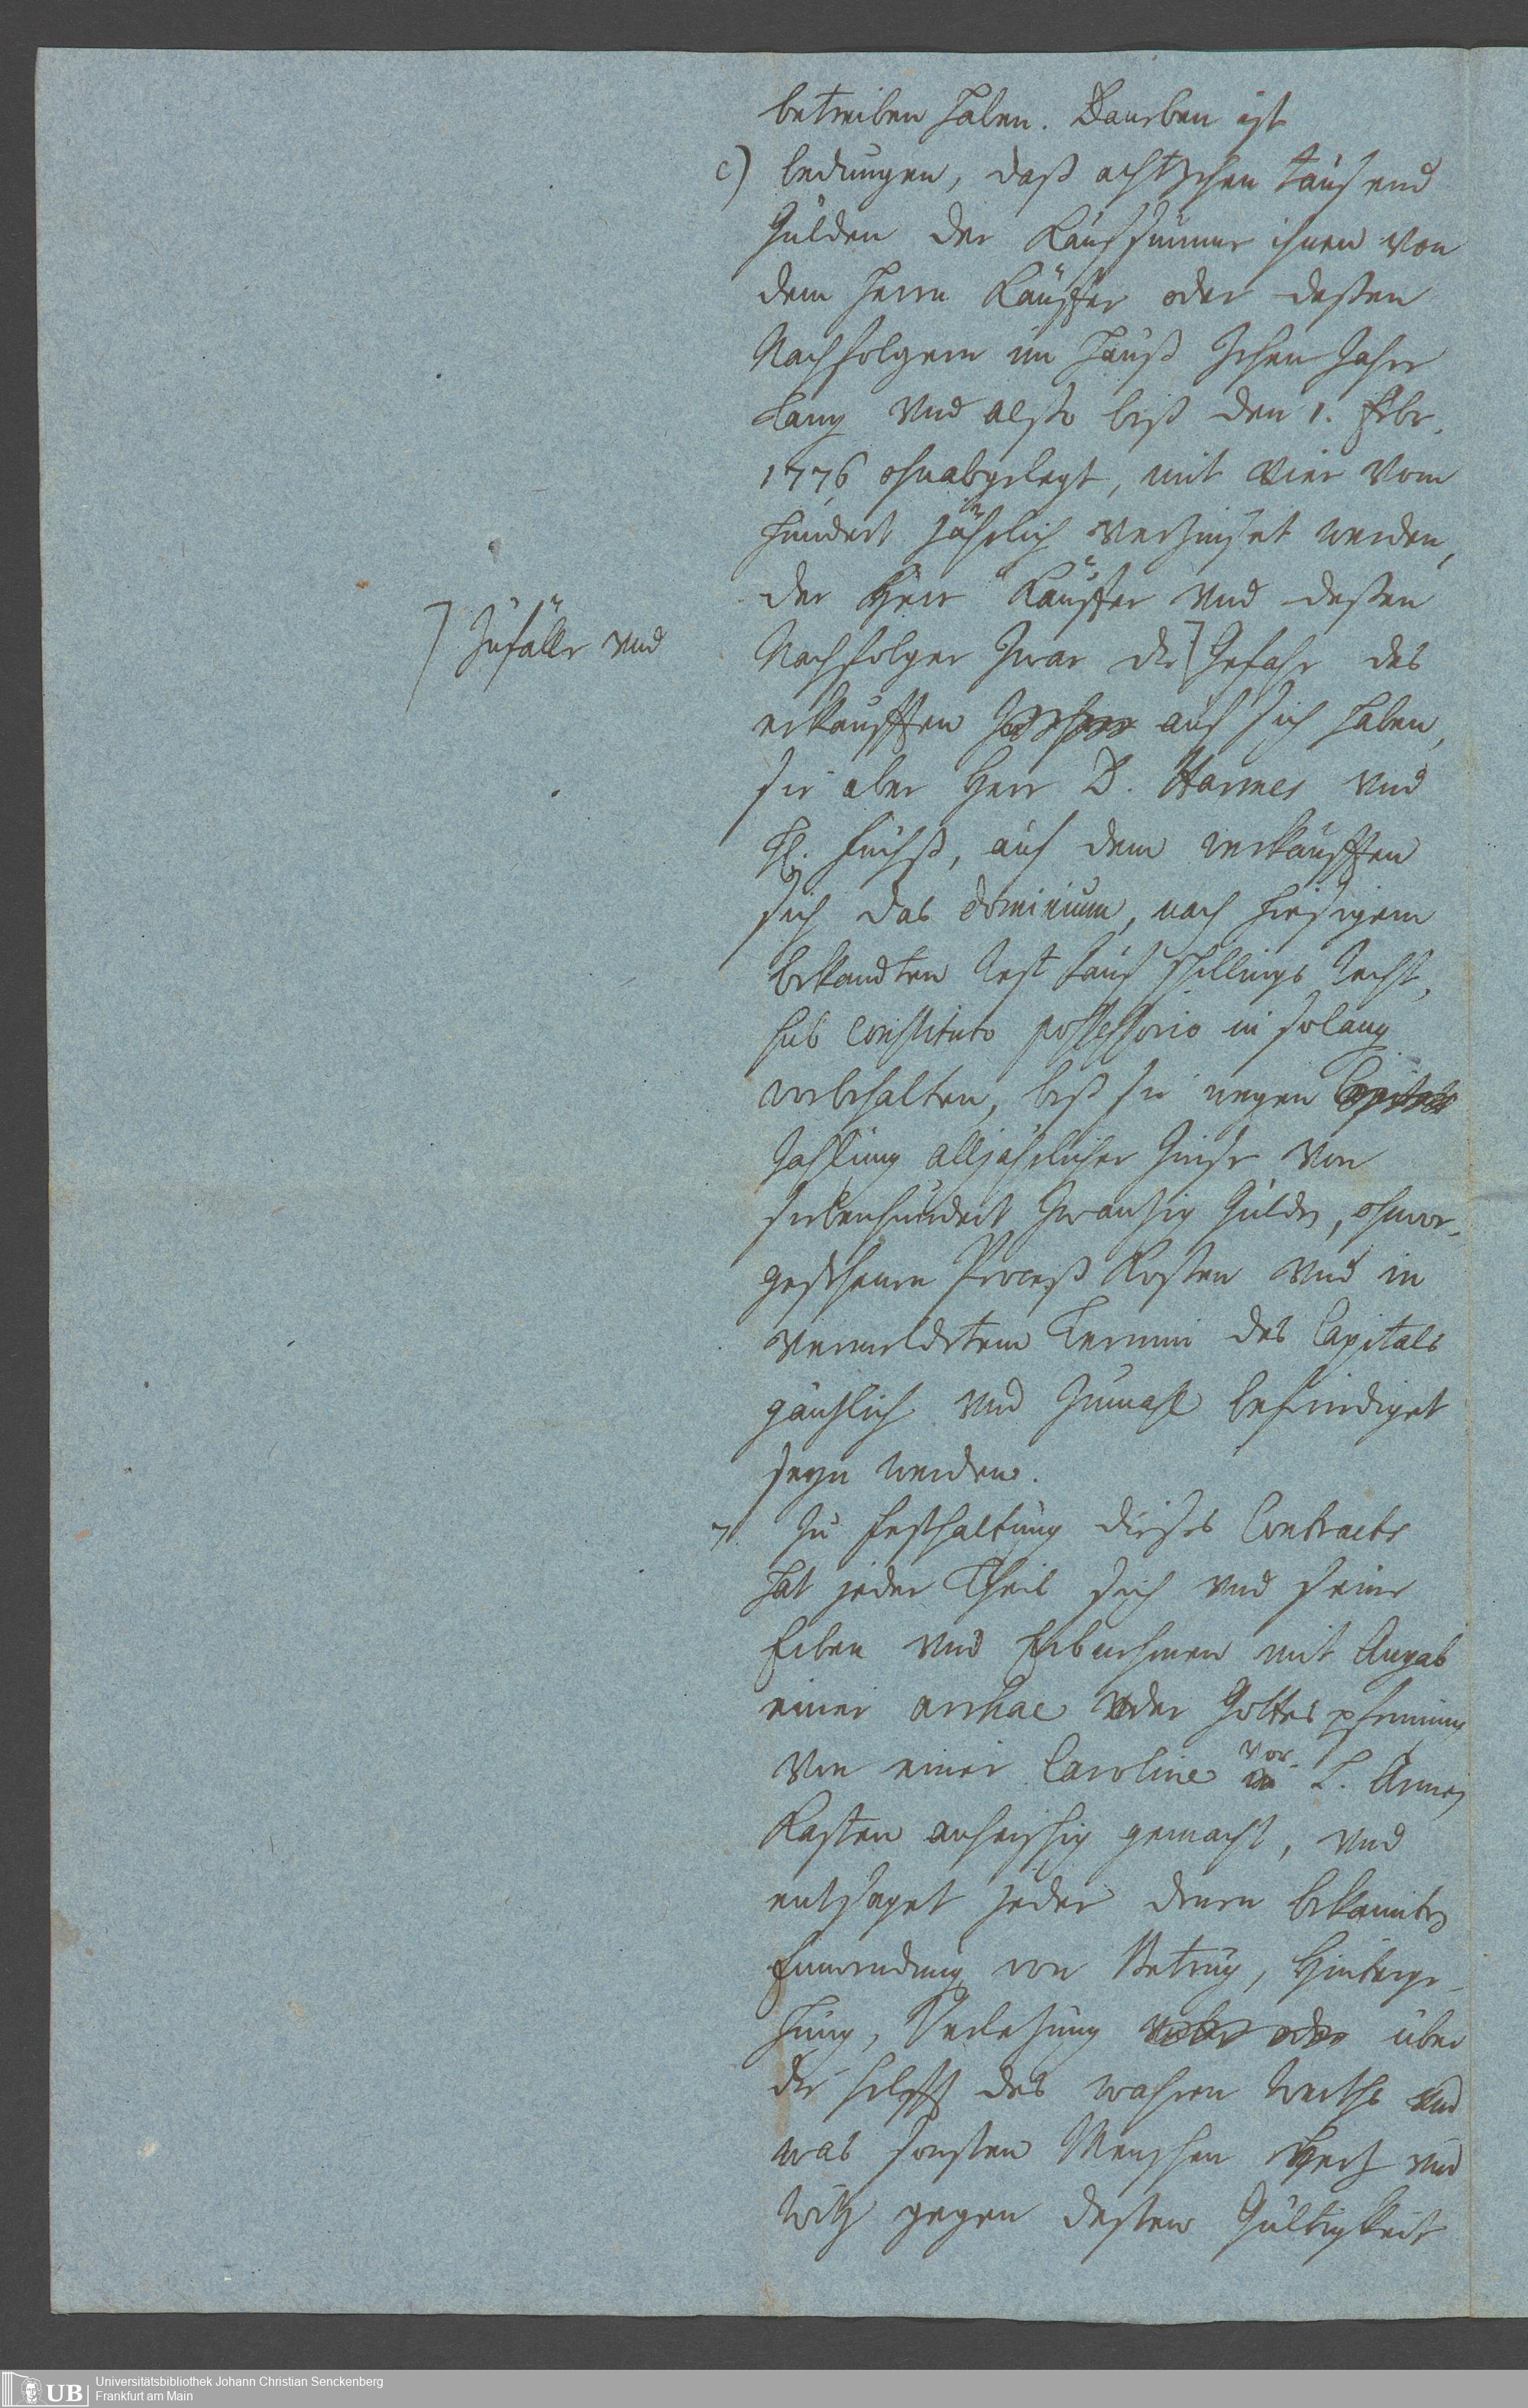 betreiben haben. Daneben ist
c) bedungen, daß achtzehen tausend
Gulden der Kaufsumme ihnen von
dem Herrn Käuffer oder deßen
Nachfolgern im Hauß zehen Jahre
lang und also biß den 1. Febr.
1776 ohnabgelegt, mit vier vom
hundert jährlich verzinset werden,
der Herr Käuffer und deßen
⌉ Zufälle und
Nachfolger zwar die ⌉ Gefahr des
erkaufften auf sich haben,
sie aber Herr D. Harmes und
Fuchß, auf dem verkaufften
sich das dominium, nach hiesigem
bekandten Rest Kauf schillings Recht,
sub constituto possessorio in solang
vorbehalten, biß sie wegen
Zahlung alljährlicher Zinse von
siebenhundert zwanzig Gulden, ohnvor-
gesehenen Proceß Kosten und in
vermeldetem Termin des Capitals
gäntzlich und zumahl befriediget
seyn werden.
7. Zu Festhaltung dieses Contracts
hat jeder Theil sich und seine
Erben und Erbnehmen mit Angab
einer arrhae oder Gottes pfenning
von einer Caroline vor L. Armen
Kasten anheischig gemacht, und
entsaget jeder denen bekannten
Einwendung von Betrug, Hinterge-
hung, Verletzung über
die helfft des wahren Werths und
was sonsten Menschen Hertz und
Witz gegen deßen Gültigkeit
Universitätsbibliothek Johann Christian Senckenberg
Frankfurt am Main
UB